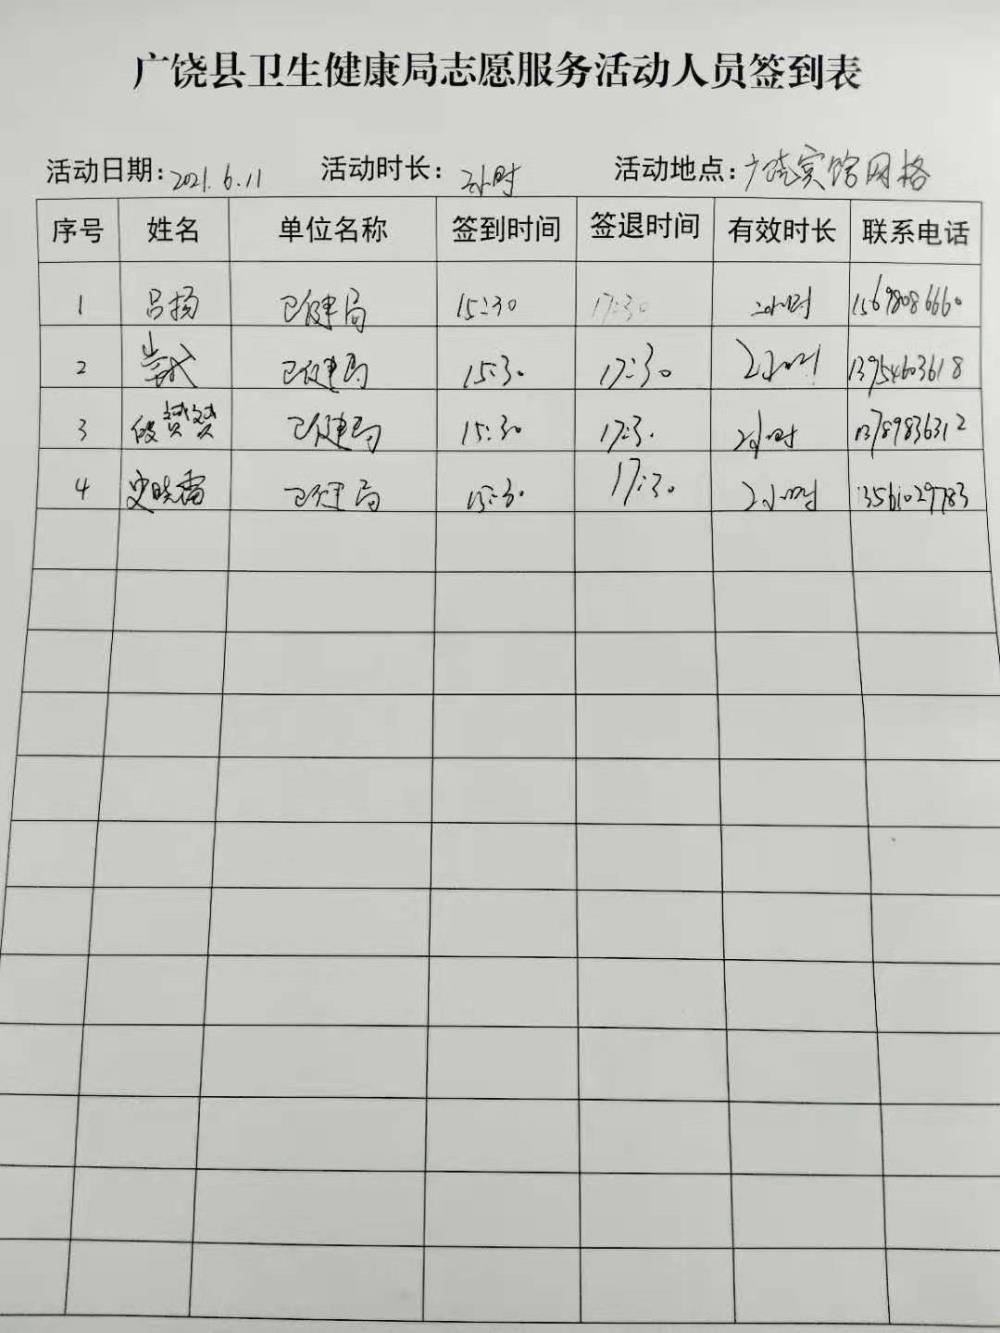 广饶县卫生健康局志愿服务活动人员签到表
活动日期：2021.6.11 活动时长：2小时 活动地点：广饶宾馆网格
序号 姓名 单位名称 签到时间 签退时间 有效时长 联系电话
1 吕扬 卫健局 15:30 17:30 2小时 15698086660
2 卫健局 15:30 17:30 2小时 13954603618
3 段赟赟 卫健局 15:30 17:3. 2小时 13789836312
4 史晓雷 卫健局 15:30 17:30 2小时 13561029783